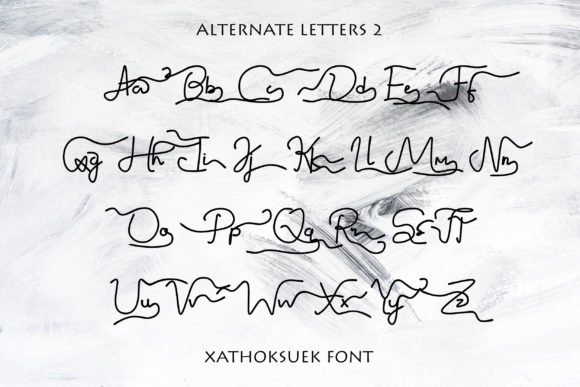 ALTERNATE LETTERS 2
Aa Bb Cc Dd Ee Ff
Gg Hh Ii Jj Kk Ll Mm Nn
Oo Pp Qq Rr Ss Tt
Uu Vv Ww Xx Yy Zz
XATHOKSUEK FONT